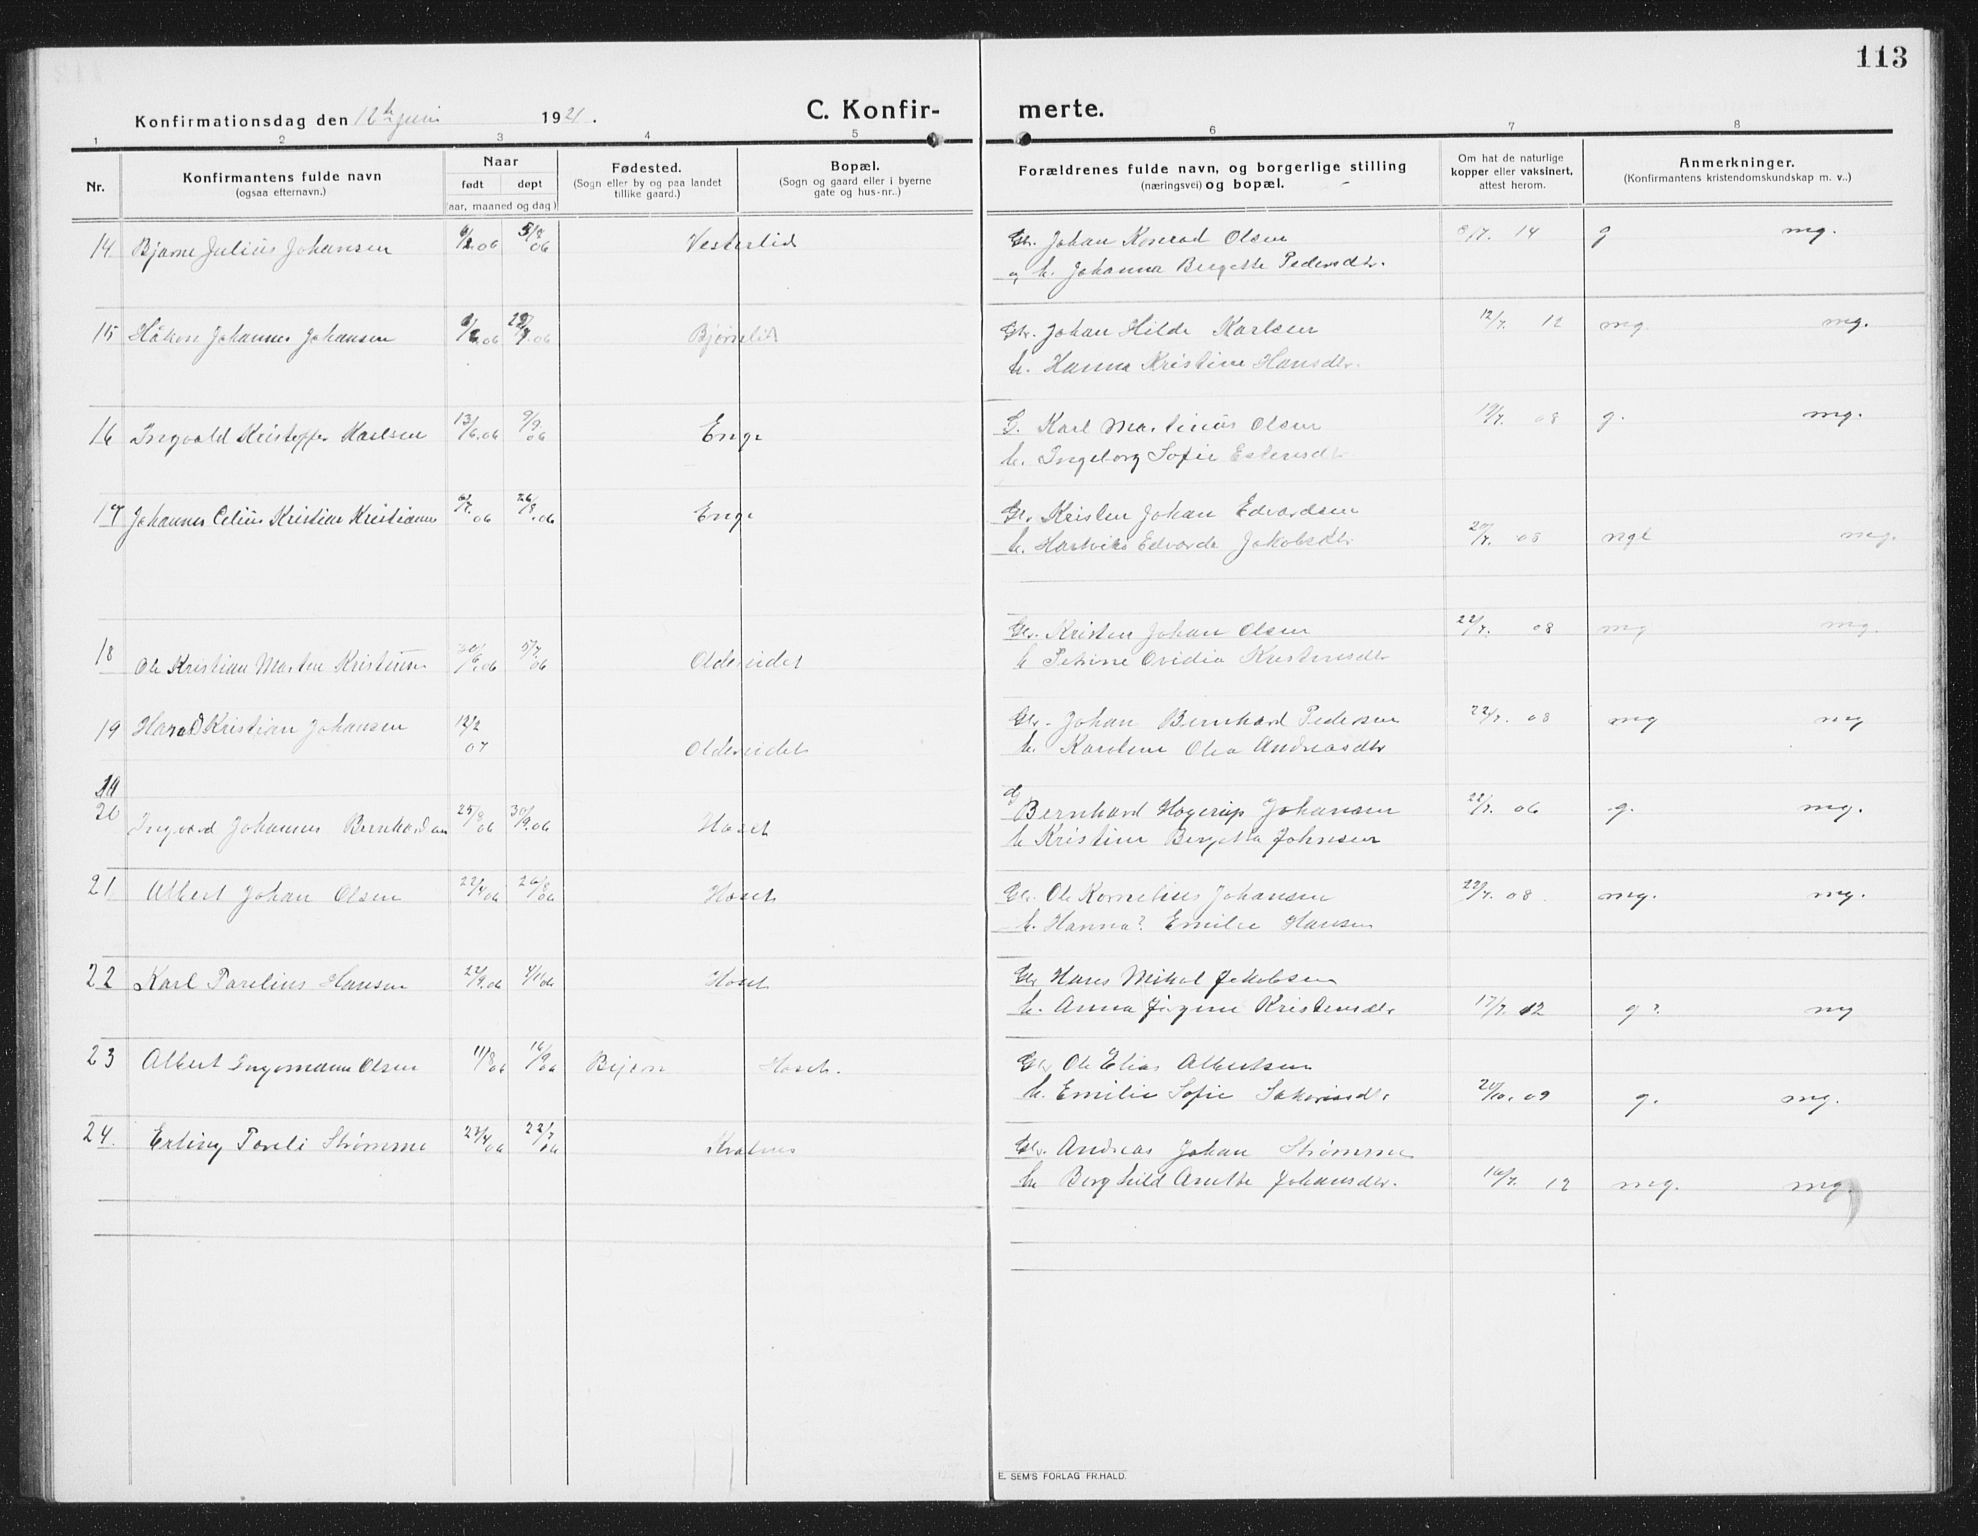 113
Konfirmationsdag den 12te juni 1921.
C. Konfir- merte.
1 2 3 4 5 6 7 8
Nr.
Konfirmantens fulde navn
(ogsaa efternavn.)
Naar
født døpt
(aar, maaned og dag)
Fødested.
(Sogn eller by og paa landet
tillike gaard.)
Bopæl.
(Sogn og gaard eller i byerne
gate og hus-nr..)
Forældrenes fulde navn, og borgerlige stilling
(næringsvei) og bopæl.
Om hat de naturlige
kopper eller vaksinert,
attest herom.
Anmerkninger.
(Konfirmantens kristendomskundskap m. v..)
14 Bjarne Julius Johansen Vesterlid Gbr. Johan Konrad Olsen 8/7. 14 g mg.
h. Johanna Bergette Pedersdtr.
15 Håkon Johannes Johansen Bjørnlid Gbr. Johan Hilde Karlsen 12/7. 12 mg. mg.
h. Hanna Kristine Hansdtr.
16 Ingvald Kristoffer Karlsen 13/6.06 9/9.06 Enge G. Karl Martinius Olsen 19/7. 08 g. mg.
h. Ingeborg Sofie Estensdtr
17 Johannes Celius Kristian Kristiansen 26/8.06 Enge Gbr. Kristen Johan Edvardsen
h. Hartvikka Edvarda Jakobsdtr 20/7. 08 ngt mg.
18 Ole Kristian Marten Kristensen 30/6.06 5/7.06 Oldereidet Gbr. Kristen Johan Olsen 22/7. 08 mg mg.
h Petrine Ovidia Kristensdtr
19 Harald Kristian Johansen 12/2 07 Oldereidet Gbr. Johan Bernhard Pedersen 22/7. 08 mg mg
h. Karoline Olea Andreasdtr
20 Ingvard Johannes Bernhardsen 25/8 06 30/9.06 Haset Bernhard Hagerup Johansen 22/7. 06 g. mg.
h Kristine Bergetta Johnsen
21. Albert Johan Olsen 22/4 06 26/8 06 Haset Gbr. Ole Kornelius Johansen 22/7. 08. mg. mg.
h. Hanna? Emilie Hansen
22 Karl Parelius Hansen 22/9.06 4/11 06 Haset Gbr Hans Mikal Jakobsen
h. Anna Jørgine Kristensdtr 17/7. 12 g? mg
23 Albert Ingemann Olsen 11/8 06 16/9 06 Bejern Haset. Gbr Ole Elias Albertsen
h. Emilie Sofie Sakariasdtr 20/10. 09 g. mg.
24. Erling Pareli Strømme 23/4 06 22/7 06 Kvalnes Gbr. Andreas Johan Strømme
h. Berghild Anette Johansdtr. 16/7. 12 mg. mg.
E. SEM'S FORLAG FR.HALD.